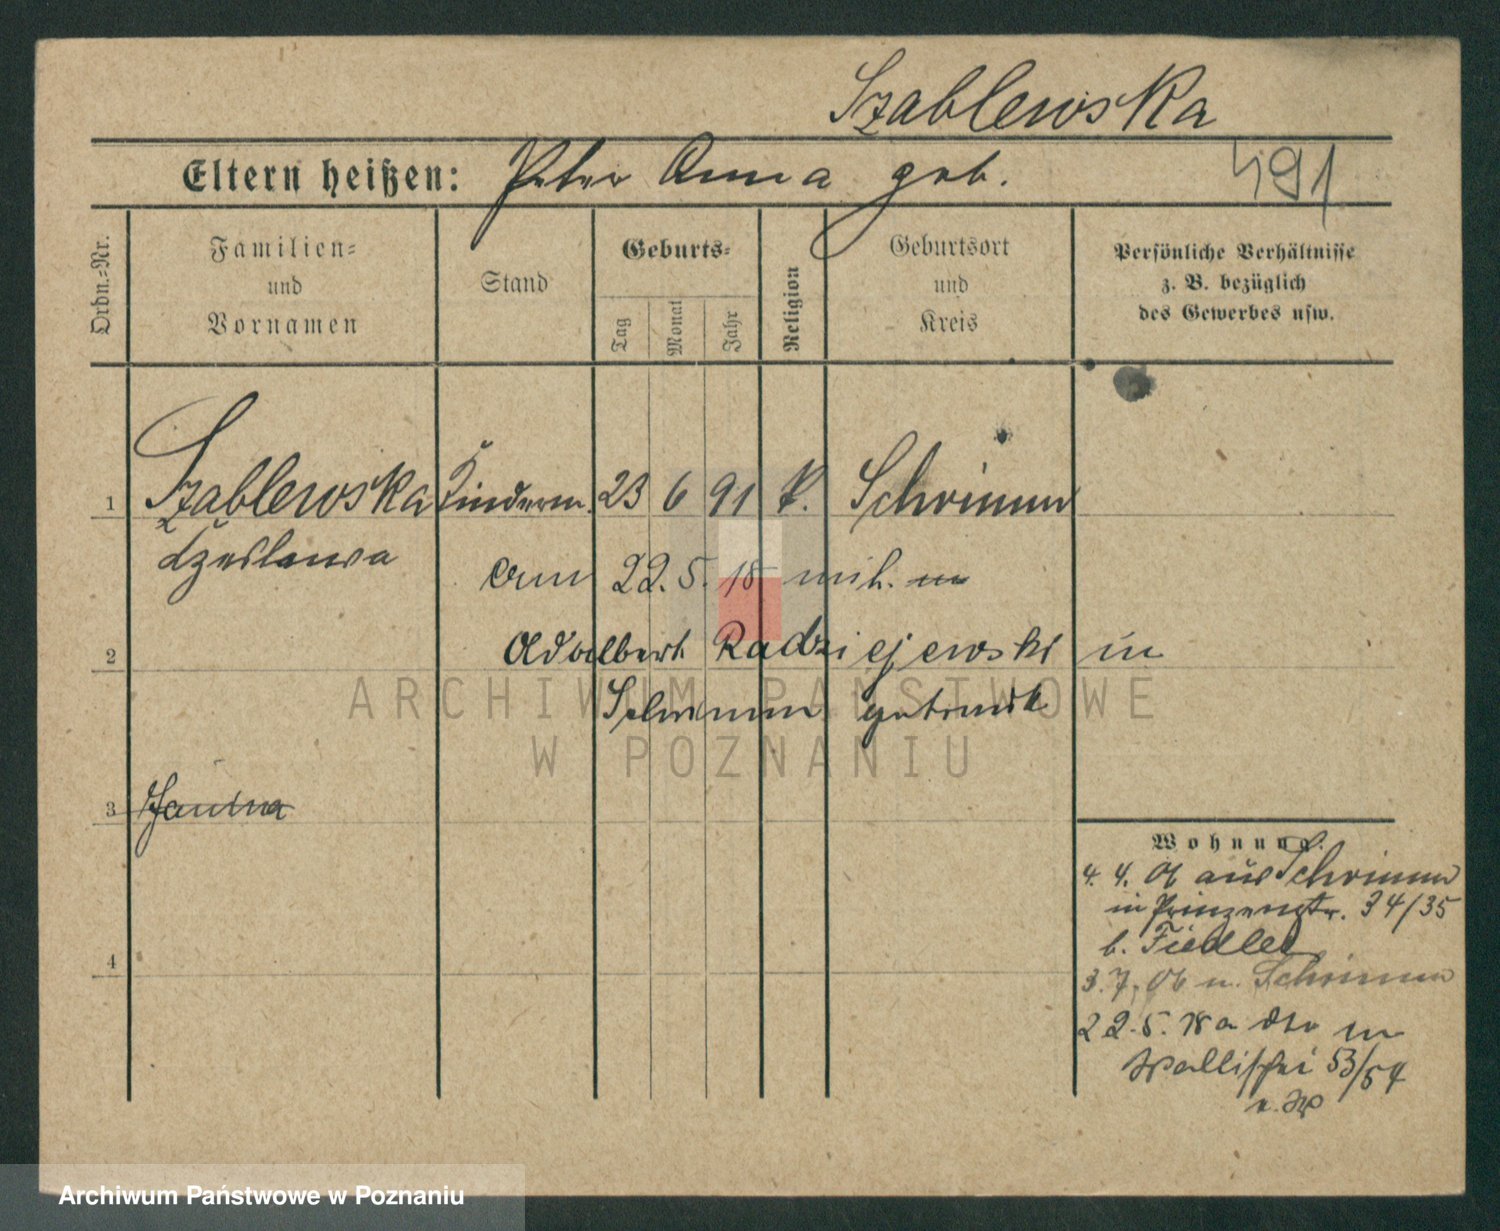 Szablewska
Eltern heißen: Peter Anna geb. 491
Ordn.-Nr.
Familien-
und
Vornamen
Stand
Geburts-
Tag Monat Jahr
Religion
Geburtsort
und
Kreis
Persönliche Verhältnisse
z. B. bezüglich
des Gewerbes usw.
1 Szablewska Kinderm. 23 6 91 k. Schrimm
Czeslawa
am 22. 5. 18 mit
2 Adalbert Radziejewski in
Schrimm getraut
3 Janina
4
Wohnung.
4. 4. 06 aus Schrimm
in Prinzenstr. 34/35
b. Fiedler
3. 7. 06 n. Schrimm
22. 5. 18 a in
Wallischei 53/54
ARCHIWUM PAŃSTWOWE
W POZNANIU
Archiwum Państwowe w Poznaniu